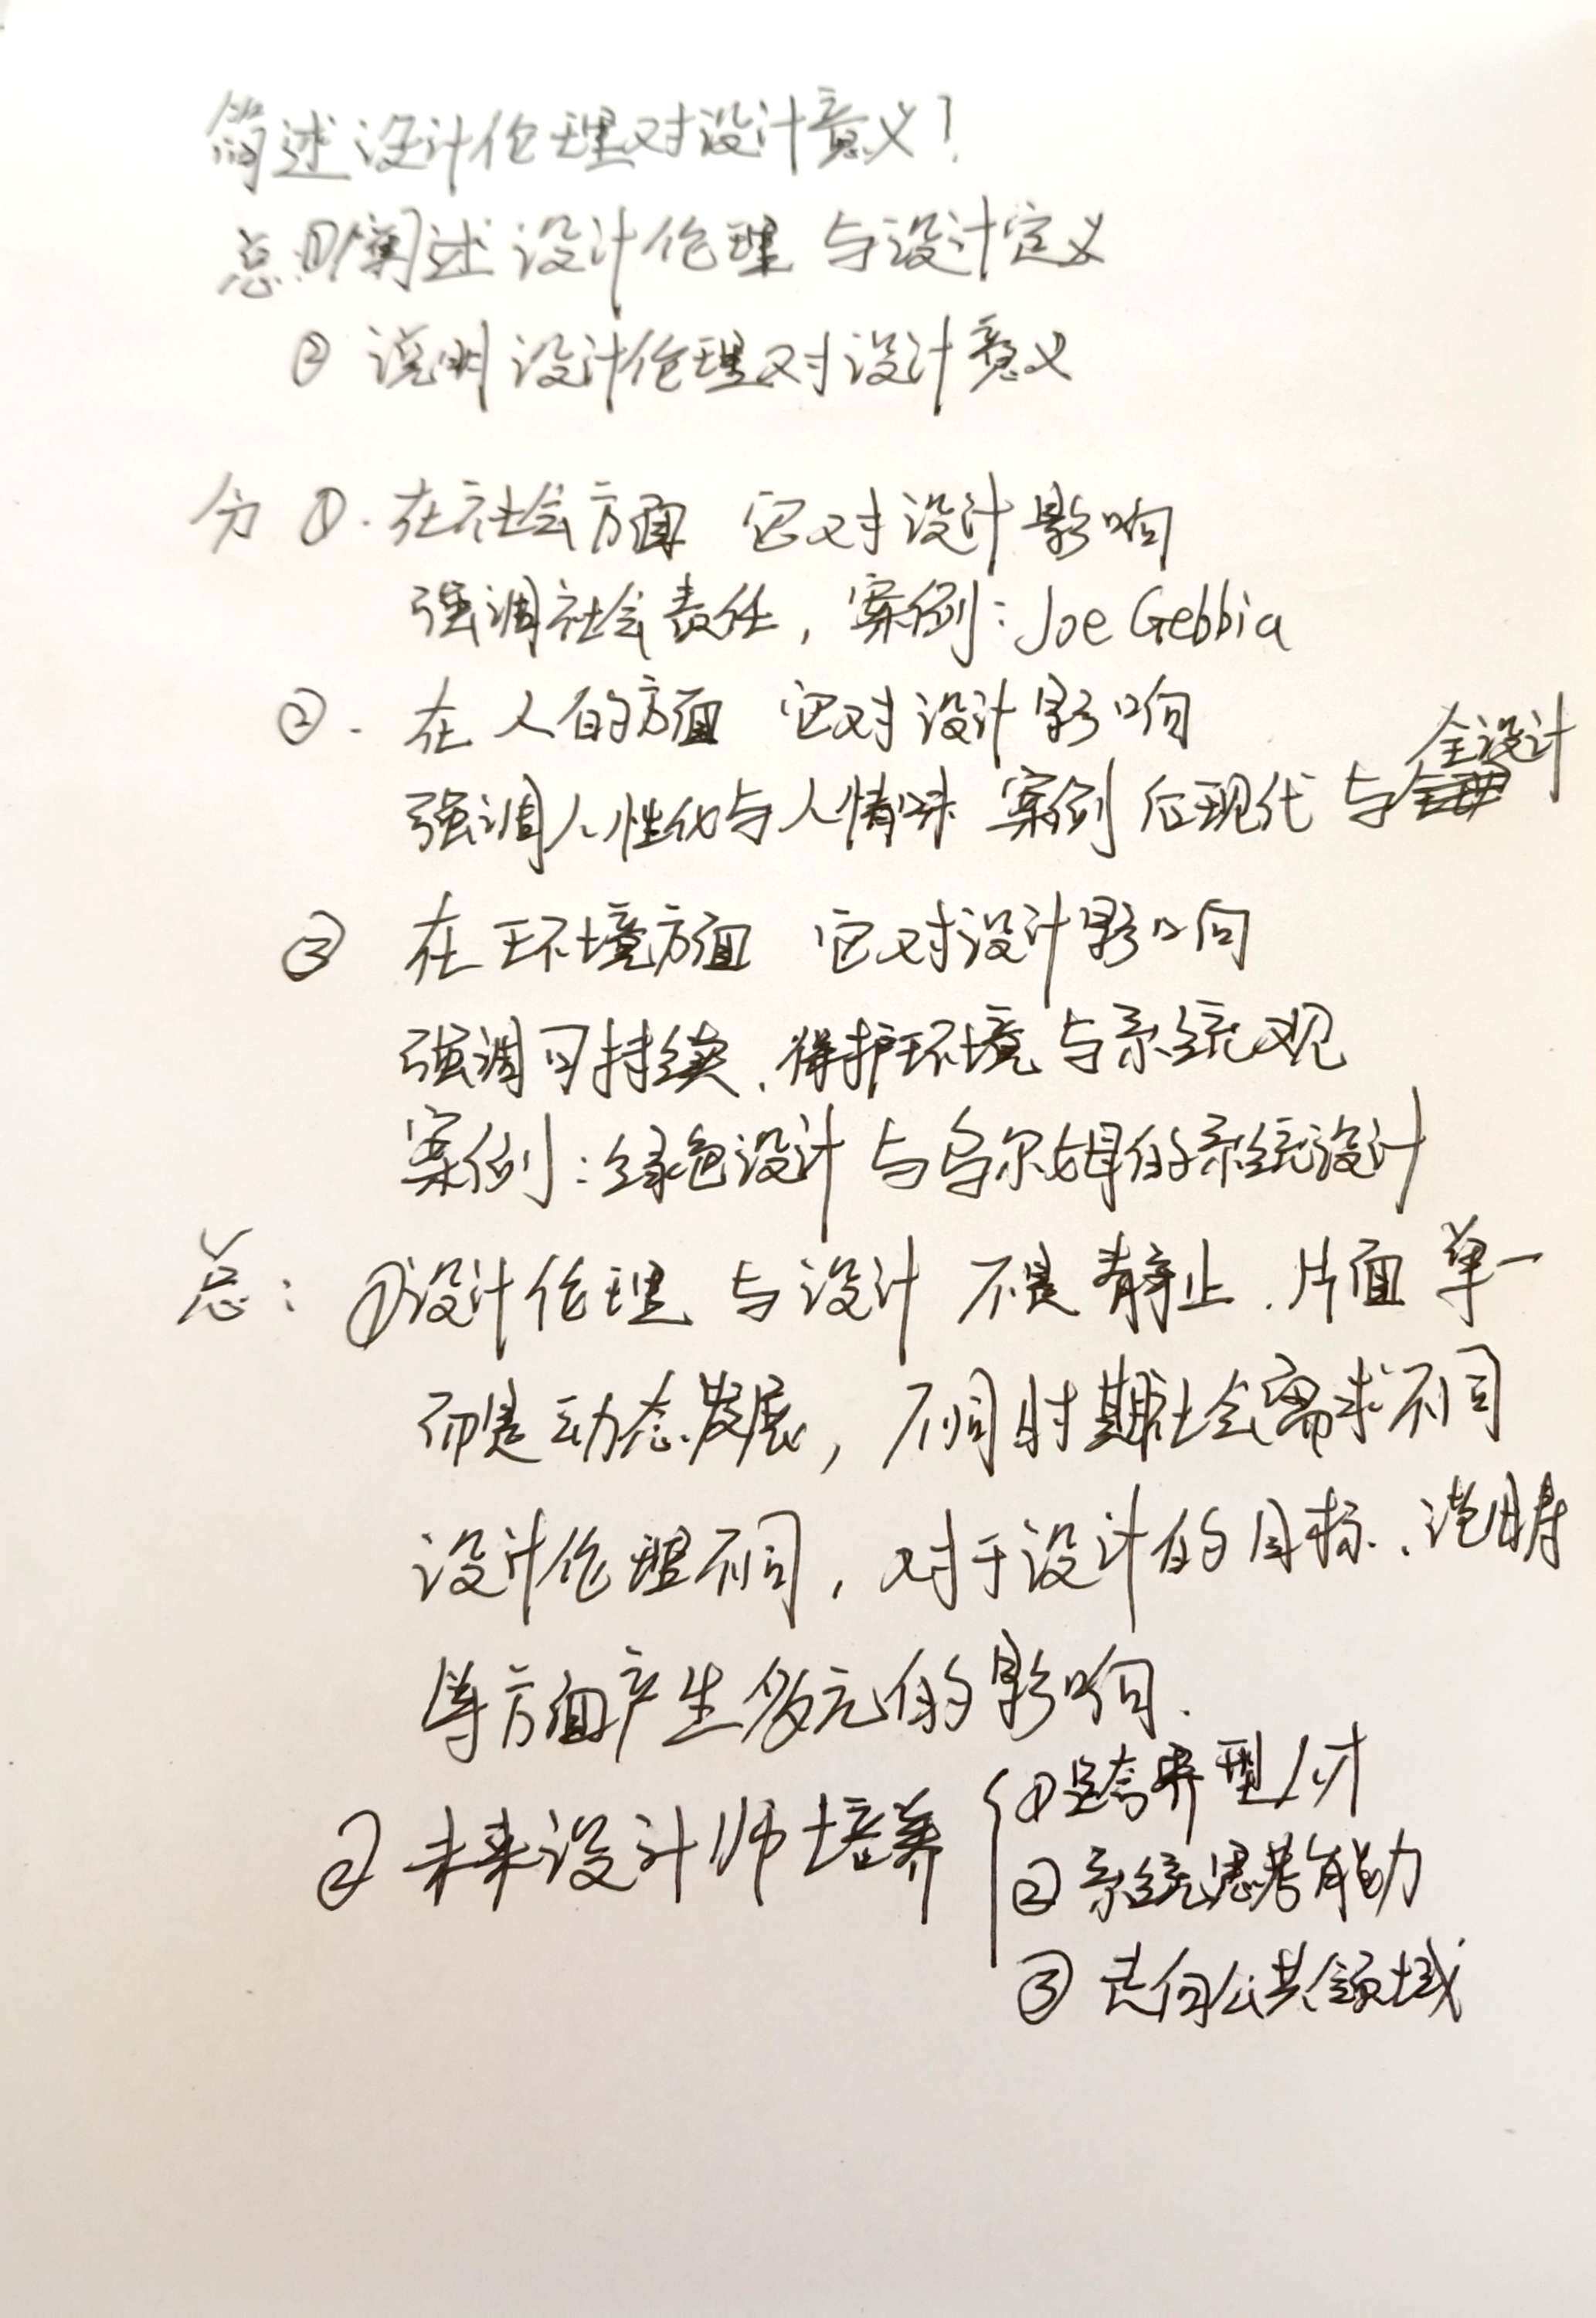 简述设计伦理对设计意义?
总:①阐述设计伦理 与设计定义
② 说明设计伦理对设计意义
分 ①. 在社会方面 它对设计影响
强调社会责任, 案例: Joe Gebbia
②. 在人的方面 它对设计影响
全设计
强调人性化与人情味 案例 后现代 与
③ 在环境方面 它对设计影响
强调可持续、保护环境与系统观
案例:绿色设计与乌尔姆的系统设计
总: ①设计伦理 与设计 不是静止、片面 单一
而是动态发展, 不同时期社会需求不同
设计伦理不同, 对于设计的目标、
等方面产生多元的影响.
② 未来设计师培养
①跨界型人才
②系统思考能力
③ 走向公共领域